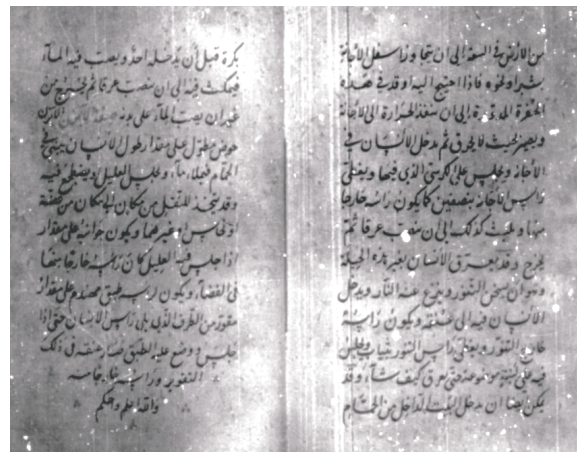 من الارض في السعة الى ان تتجاوز اسفل الاجانة
بشبر او نحوه فاذا احتيج اليه اوقد في هذه
الحفرة الى ان تنفذ الحرارة الى الاجانة
ويصير بحيث لا يحرق ثم يدخل الانسان في
الاجانة ويجلس على الكرسي الذي فيها ويغطى
راس الاجانة بنصفين كما يكون راسه خارجا
منها ويلبث كذلك الى ان يتصبب عرقا ثم
يخرج وقد يعرق الانسان بغير هذه الحيلة
وهو ان يسخن التنور وينزع عنه النار ويدخل
الانسان فيه الى عنقه ويكون راسه
خارج التنور ويغطى راس التنور بثياب ويجلس
فيه على لبنة موضوعة حتى يعرق كيف شاء وقد
يمكن ايضا ان يدخل البيت الداخل من الحمام
بكرة قبل ان يدخله احد ويصب فيه الماء
فيمكث فيه الى ان يتصبب عرقا ثم يخرج من
غير ان يصب الماء على بدنه
حوض مطول على مقدار طول الانسان
ماء ويجلس العليل ويضطجع فيه
وقد يتخذ للنقل من مكان الى مكان من خشبة
او نحاس او غيرهما ويكون جوانبه على مقدار
اذا جلس فيه العليل كان راسه خارجا منها
في الفضاء ويكون له طبق مهندم على مقدار
مقور من الطرف الذي يلي راس الانسان حتى اذا
جلس وضع عليه الطبق فصار عنقه في ذلك
التقوير وراسه خارجا منه
والله اعلم واحكم